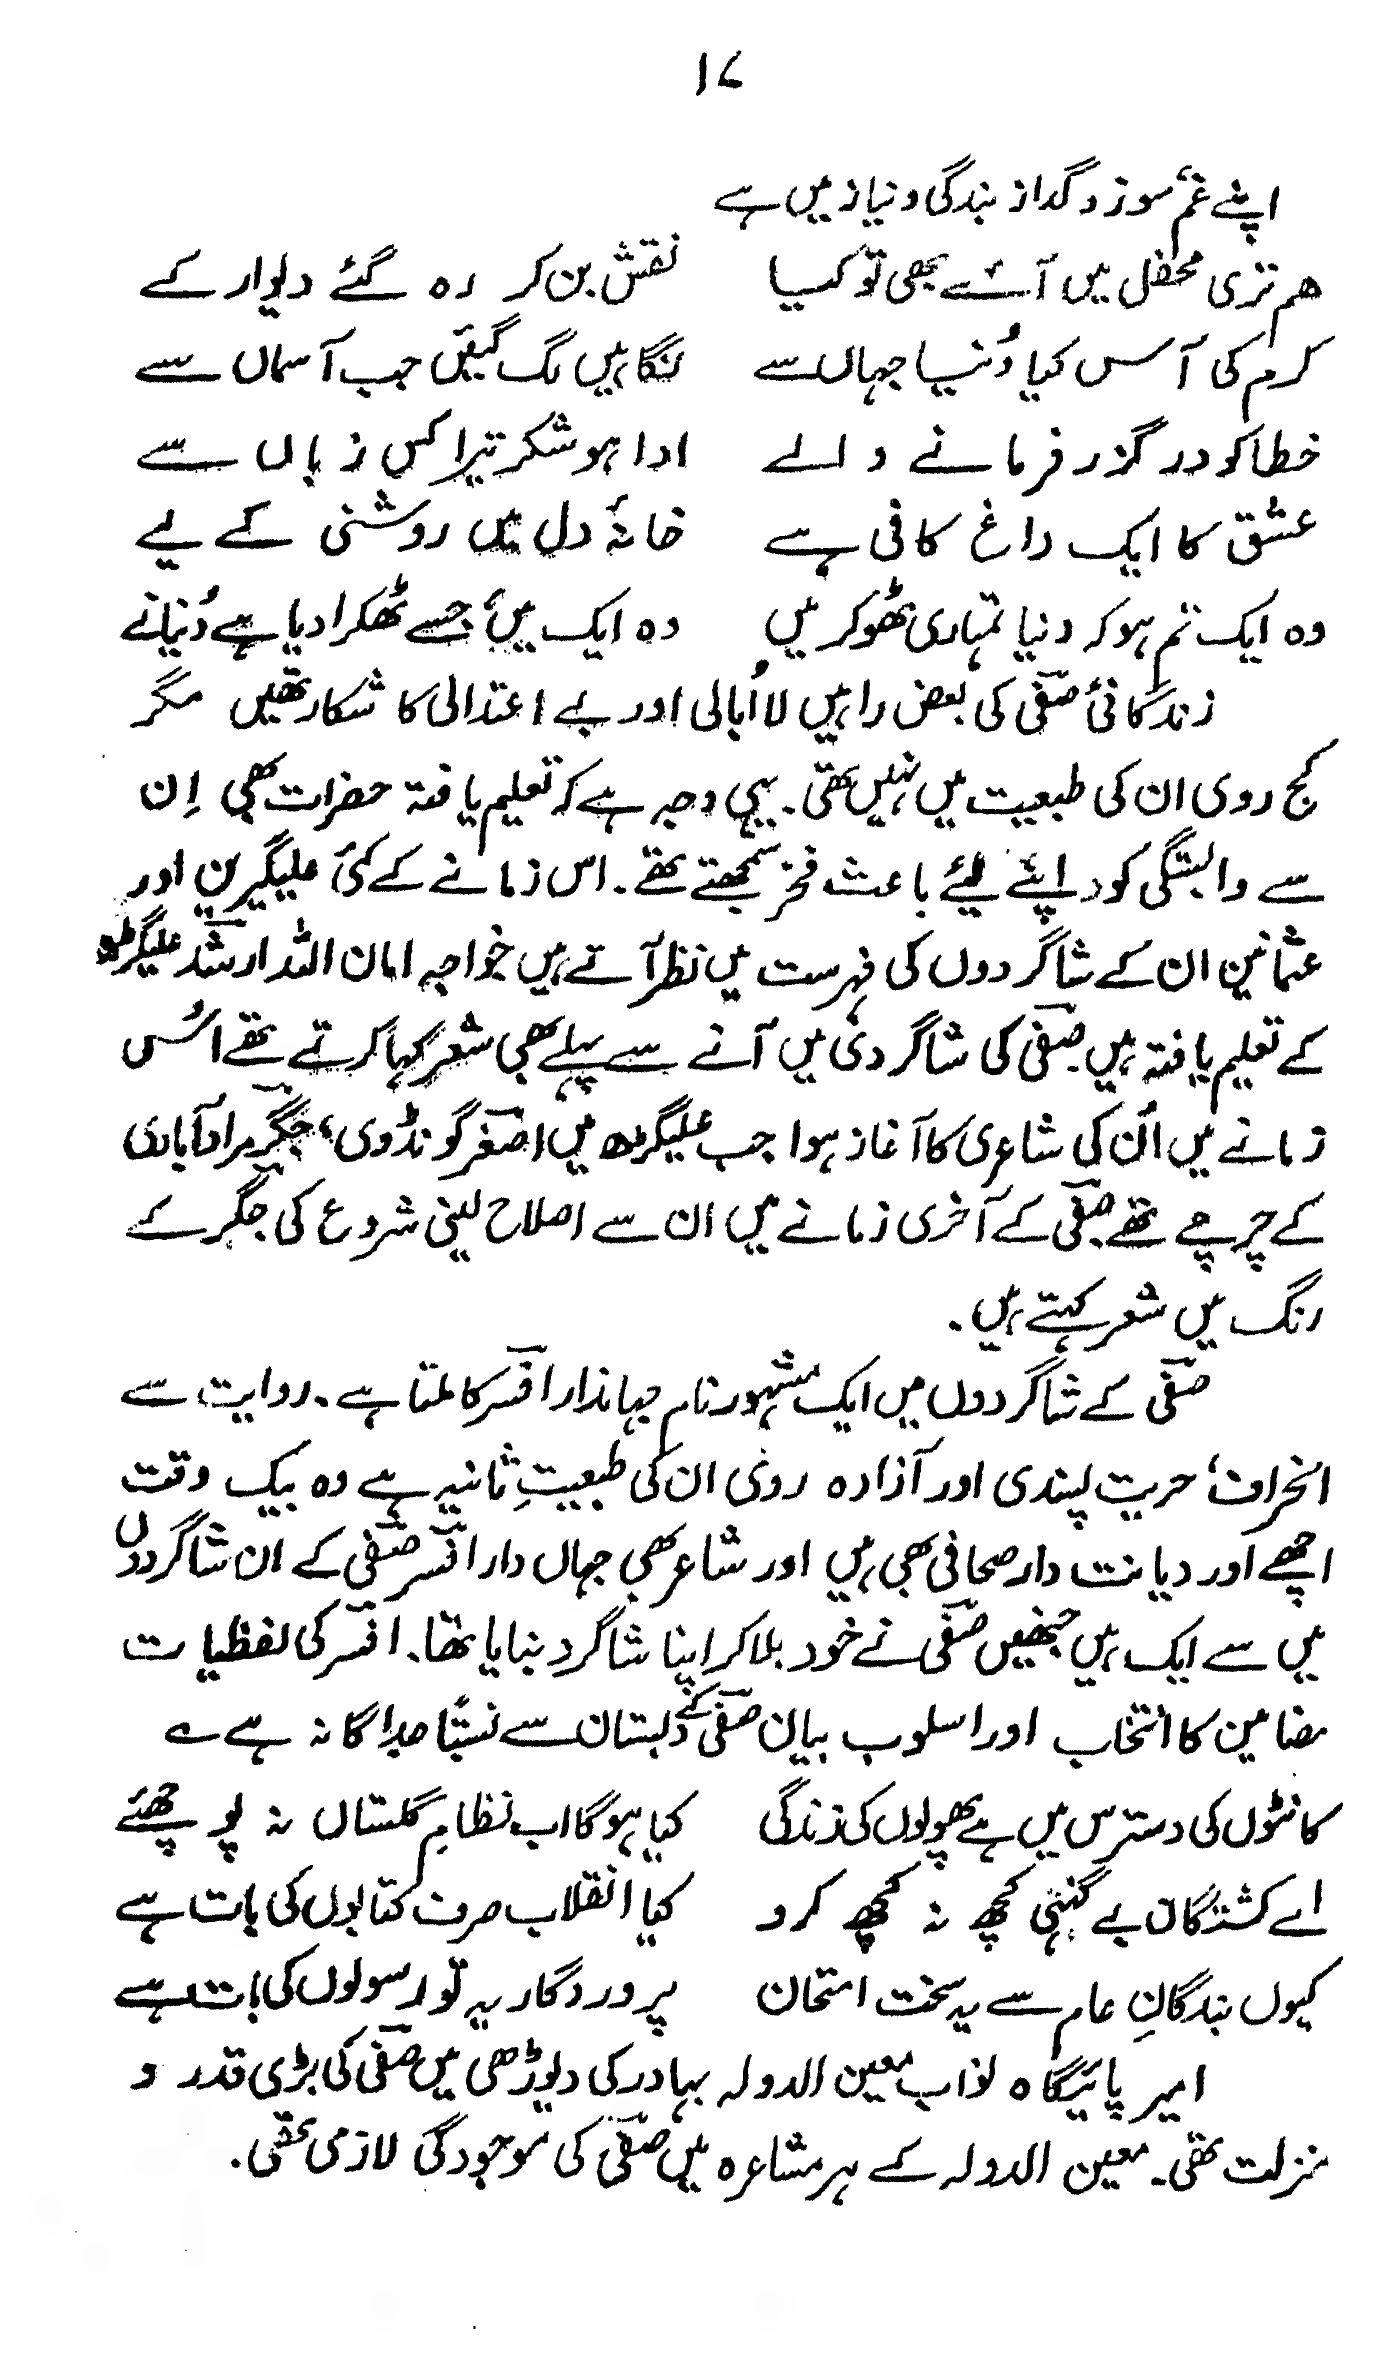 ۱۷
اپنے غم سوز و گداز بندگی و نیاز میں ہے
ہم تری محفل میں آئے بھی تو کیا نقش بن کر رہ گئے دیوار کے
کرم کی آس کیا دُنیا جہاں سے نگاہیں لگ گئیں جب آسماں سے
خطا کو درگزر فرمانے والے ادا ہو شکر تیرا کس زباں سے
عشق کا ایک داغ کافی ہے خانۂ دل میں روشنی کے لیے
وہ ایک تم ہو کہ دنیا تمہاری ٹھوکر میں وہ ایک میں، جسے ٹھکرا دیا ہے دُنیا نے
زندگانئ صفیؔ کی بعض راہیں لااُبالی اور بے اعتدالی کا شکار تھیں مگر
کج روی ان کی طبیعت میں نہیں تھی۔ یہی وجہ ہے کہ تعلیم یافتہ حضرات بھی اِن
سے وابستگی کو اپنے لئے باعث فخر سمجھتے تھے۔ اس زمانے کے کئی علیگیرین اور
عثمانین ان کے شاگردوں کی فہرست میں نظر آتے ہیں خواجہ امان اللہ ارشدؔ علیگڑھ
کے تعلیم یافتہ ہیں صفیؔ کی شاگردی میں آنے سے پہلے بھی شعر کہا کرتے تھے اُس
زمانے میں اُن کی شاعری کا آغاز ہوا جب علیگڑھ میں اصغرؔ گونڈوی، جگرؔ مرادآبادی
کے چرچے تھے صفیؔ کے آخری زمانے میں ان سے اصلاح لینی شروع کی جگر کے
رنگ میں شعر کہتے ہیں۔
صفیؔ کے شاگردوں میں ایک مشہور نام جہاندار افسرؔ کا ملتا ہے۔ روایت سے
انحراف، حریت پسندی اور آزادہ روی ان کی طبیعتِ ثانیہ ہے وہ بیک وقت
اچھے اور دیانت دار صحافی بھی ہیں اور شاعر بھی جہاں دار افسرؔ صفیؔ کے ان شاگردوں
میں سے ایک ہیں جنھیں صفیؔ نے خود بلا کر اپنا شاگرد بنایا تھا۔ افسرؔ کی لفظیات
مضامین کا انتخاب اور اسلوب بیان صفیؔ کے دبستان سے نسبتًا جداگانہ ہے ؎
کانٹوں کی دسترس میں ہے پھولوں کی زندگی کیا ہوگا اب نظامِ گلستاں نہ پوچھئے
اے کشتگان بے گنہی کچھ نہ کچھ کرو کیا انقلاب صرف کتابوں کی بات ہے
کیوں بندگانِ عام سے یہ سخت امتحان پروردگار یہ تو رسولوں کی بات ہے
امیر پائیگاہ نواب معین الدولہ بہادر کی دیوڑھی میں صفیؔ کی بڑی قدر و
منزلت تھی۔ معین الدولہ کے ہر مشاعرہ میں صفیؔ کی موجودگی لازمی تھی۔